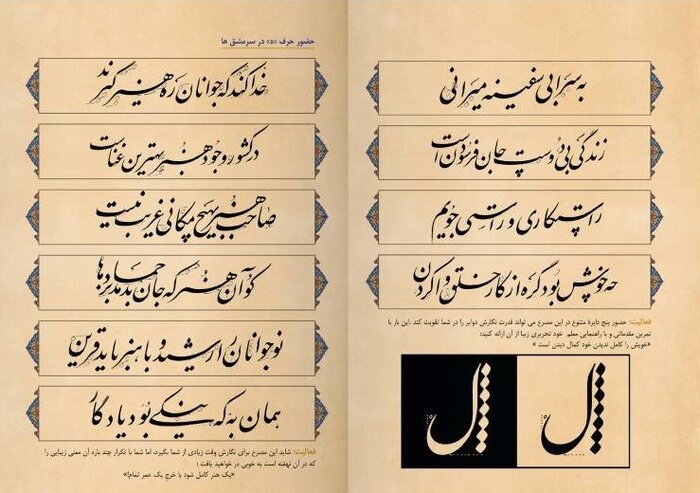 به سرابی سفینه میرانی
زندگی بی دوست جان فرسودن است
راستکاری و راستی جویم
چه خوش بود گره از کار خلق وا کردن
فعالیت: حضور پنج دایرهٔ متنوع در این مصرع می تواند قدرت نگارش دوایر را در شما تقویت کند .این بار با
تمرین مقدماتی و با راهنمایی معلم خود تحریری زیبا از آن ارائه کنید:
«خویش را کامل ندیدن خود کمال دیدن است »
ل
ل
حضور حرف «ه» در سرمشق ها
خدا کند که جوانان ره هنر گیرند
در کشور وجود هنر بهترین غناست
صاحب هنر به هیچ مکانی غریب نیست
کو آن هنر که جان بدمد بر جمادها
نوجوانان را رشید و با هنر باید قرین
همان به که نیکی بود یادگار
فعالیت: شاید این مصرع برای نگارش وقت زیادی از شما بگیرد؛ اما شما با تکرار چند باره آن معنی زیبایی را
که در آن نهفته است به خوبی در خواهید یافت :
«یک هنر کامل شود با خرج یک عمر تمام!»